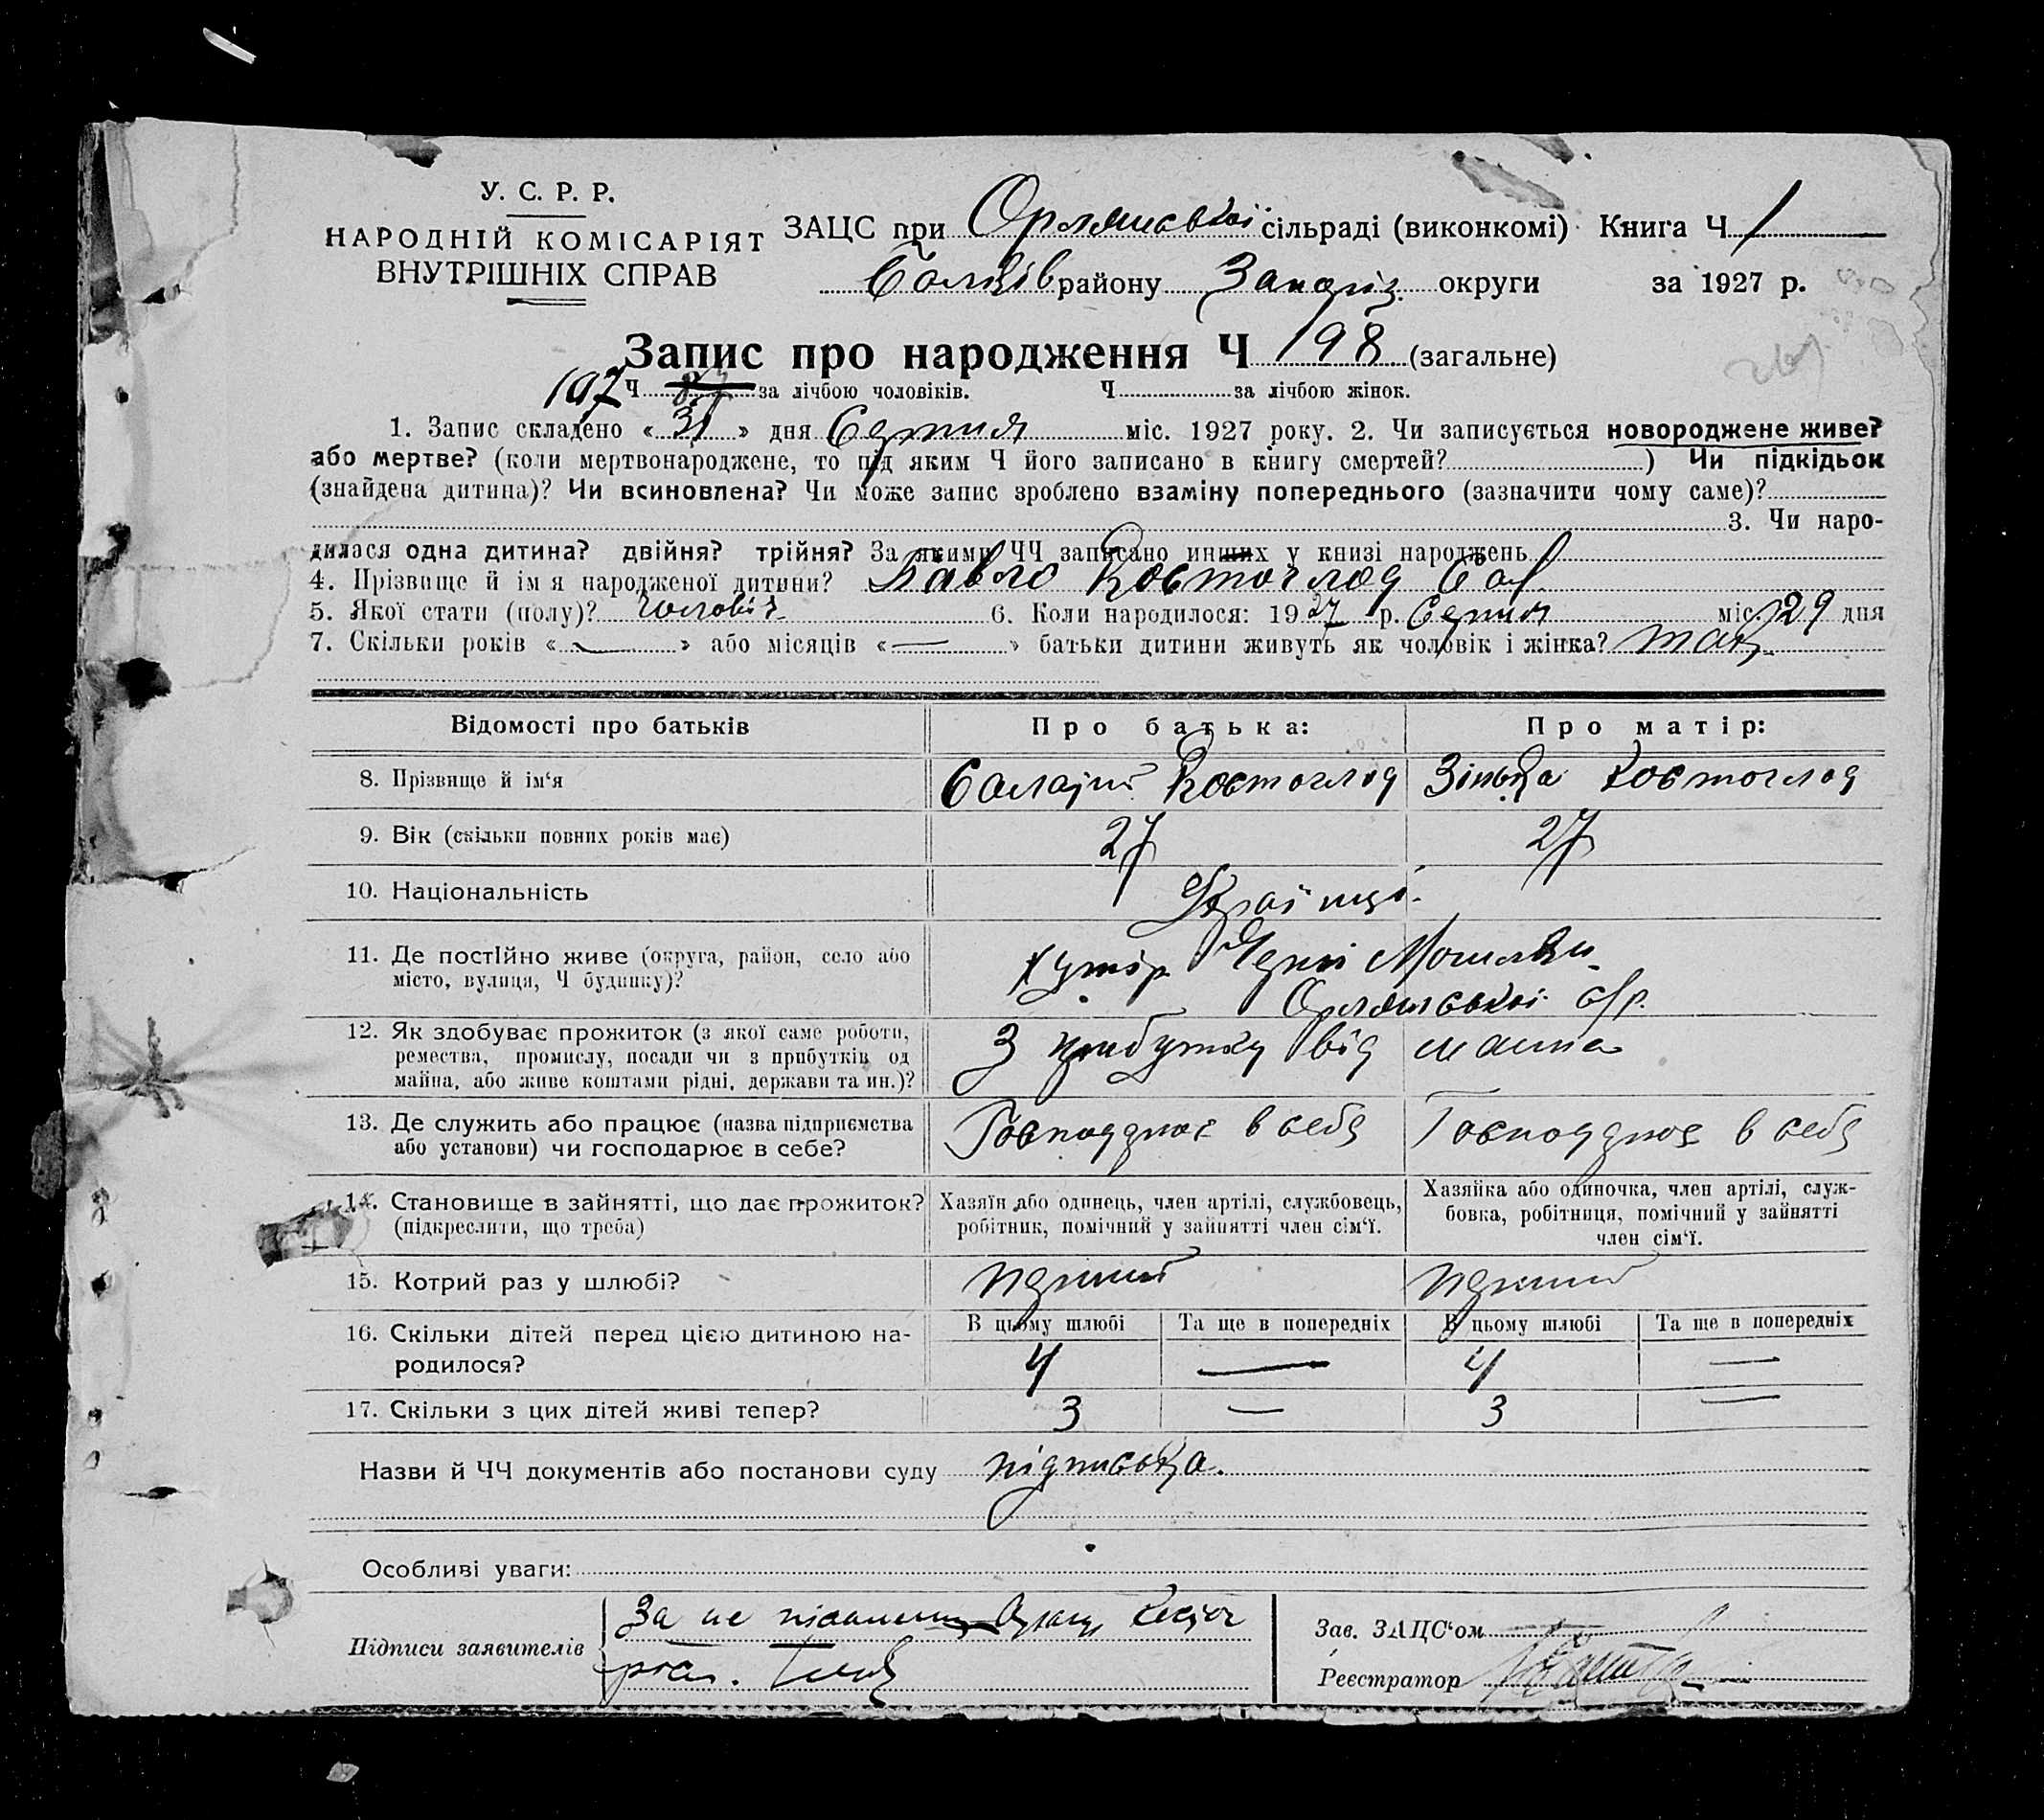 У. С. Р. Р.
НАРОДНІЙ КОМІСАРІЯТ
ВНУТРІШНІХ СПРАВ
ЗАЦС при Орлянській сільраді (виконкомі) Книга Ч 1
Балків району Запоріз. округи за 1927 р.
Запис про народження Ч 198 (загальне)
107 Ч за лічбою чоловіків. Ч за лічбою жінок.
1. Запис складено « 31 » дня Серпня міс. 1927 року. 2. Чи записується новороджене живе?
або мертве? (коли мертвонароджене, то під яким Ч його записано в книгу смертей? ) Чи підкідьок
(знайдена дитина)? Чи всиновлена? Чи може запис зроблено взаміну попереднього (зазначити чому саме)?
3. Чи наро-
дилася одна дитина? двійня? трійня? За якими ЧЧ записано инших у книзі народжень
4. Прізвище й ім я народженої дитини? Павло Костоглод Сал
5. Якої стати (полу)? чоловіч 6. Коли народилося: 1927 р. Серпня міс. 29 дня
7. Скільки років « — » або місяців « — » батьки дитини живуть як чоловік і жінка? так
Відомості про батьків Про батька: Про матір:
8. Прізвище й ім‘я Костоглод Зінька Костоглод
9. Вік (скільки повних років має) 27 27
10. Національність Українці.
11. Де постійно живе (округа, район, село або
місто, вулиця, Ч будинку)?
хутір Чорні Могилки
Орлянської с/р.
12. Як здобуває прожиток (з якої саме роботи,
ремества, промислу, посади чи з прибутків од
майна, або живе коштами рідні, держави та ин.)?
З прибутку від майна
13. Де служить або працює (назва підприємства
або установи) чи господарює в себе?
Господарює в себе Господарює в себе
14. Становище в зайнятті, що дає прожиток?
(підкреслити, що треба)
Хазяїн або одинець, член артілі, службовець,
робітник, помічний у зайнятті член сім‘ї.
Хазяйка або одиночка, член артілі, служ-
бовка, робітниця, помічний у зайнятті
член сім‘ї.
15. Котрий раз у шлюбі? перший перший
В цьому шлюбі Та ще в попередніх В цьому шлюбі Та ще в попередніх
16. Скільки дітей перед цією дитиною на-
родилося?
4 — 4 —
17. Скільки з цих дітей живі тепер? 3 — 3 —
Назви й ЧЧ документів або постанови суду підписька.
Особливі уваги:
Підписи заявителів За не
Зав. ЗАЦС‘ом
Реєстратор